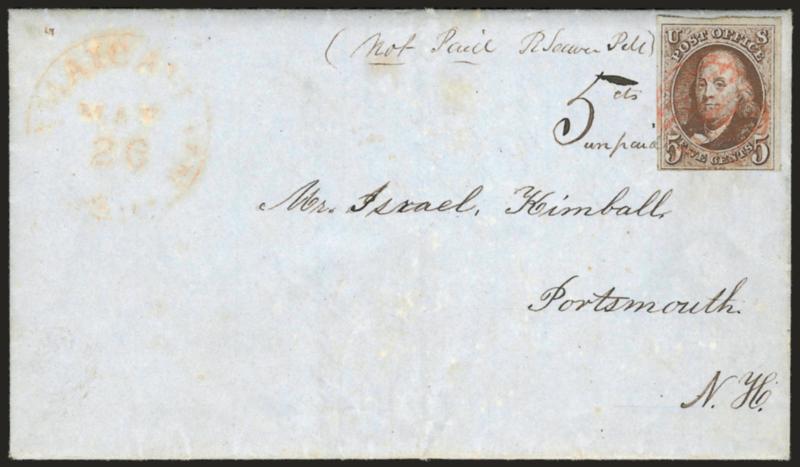 (Not Paid R Seaver P M)
U S
POST OFFICE
FIVE CENTS
5 5
5 cts
unpaid
MAY
26
Mr. Israel. Kimball.
Portsmouth.
N. H.